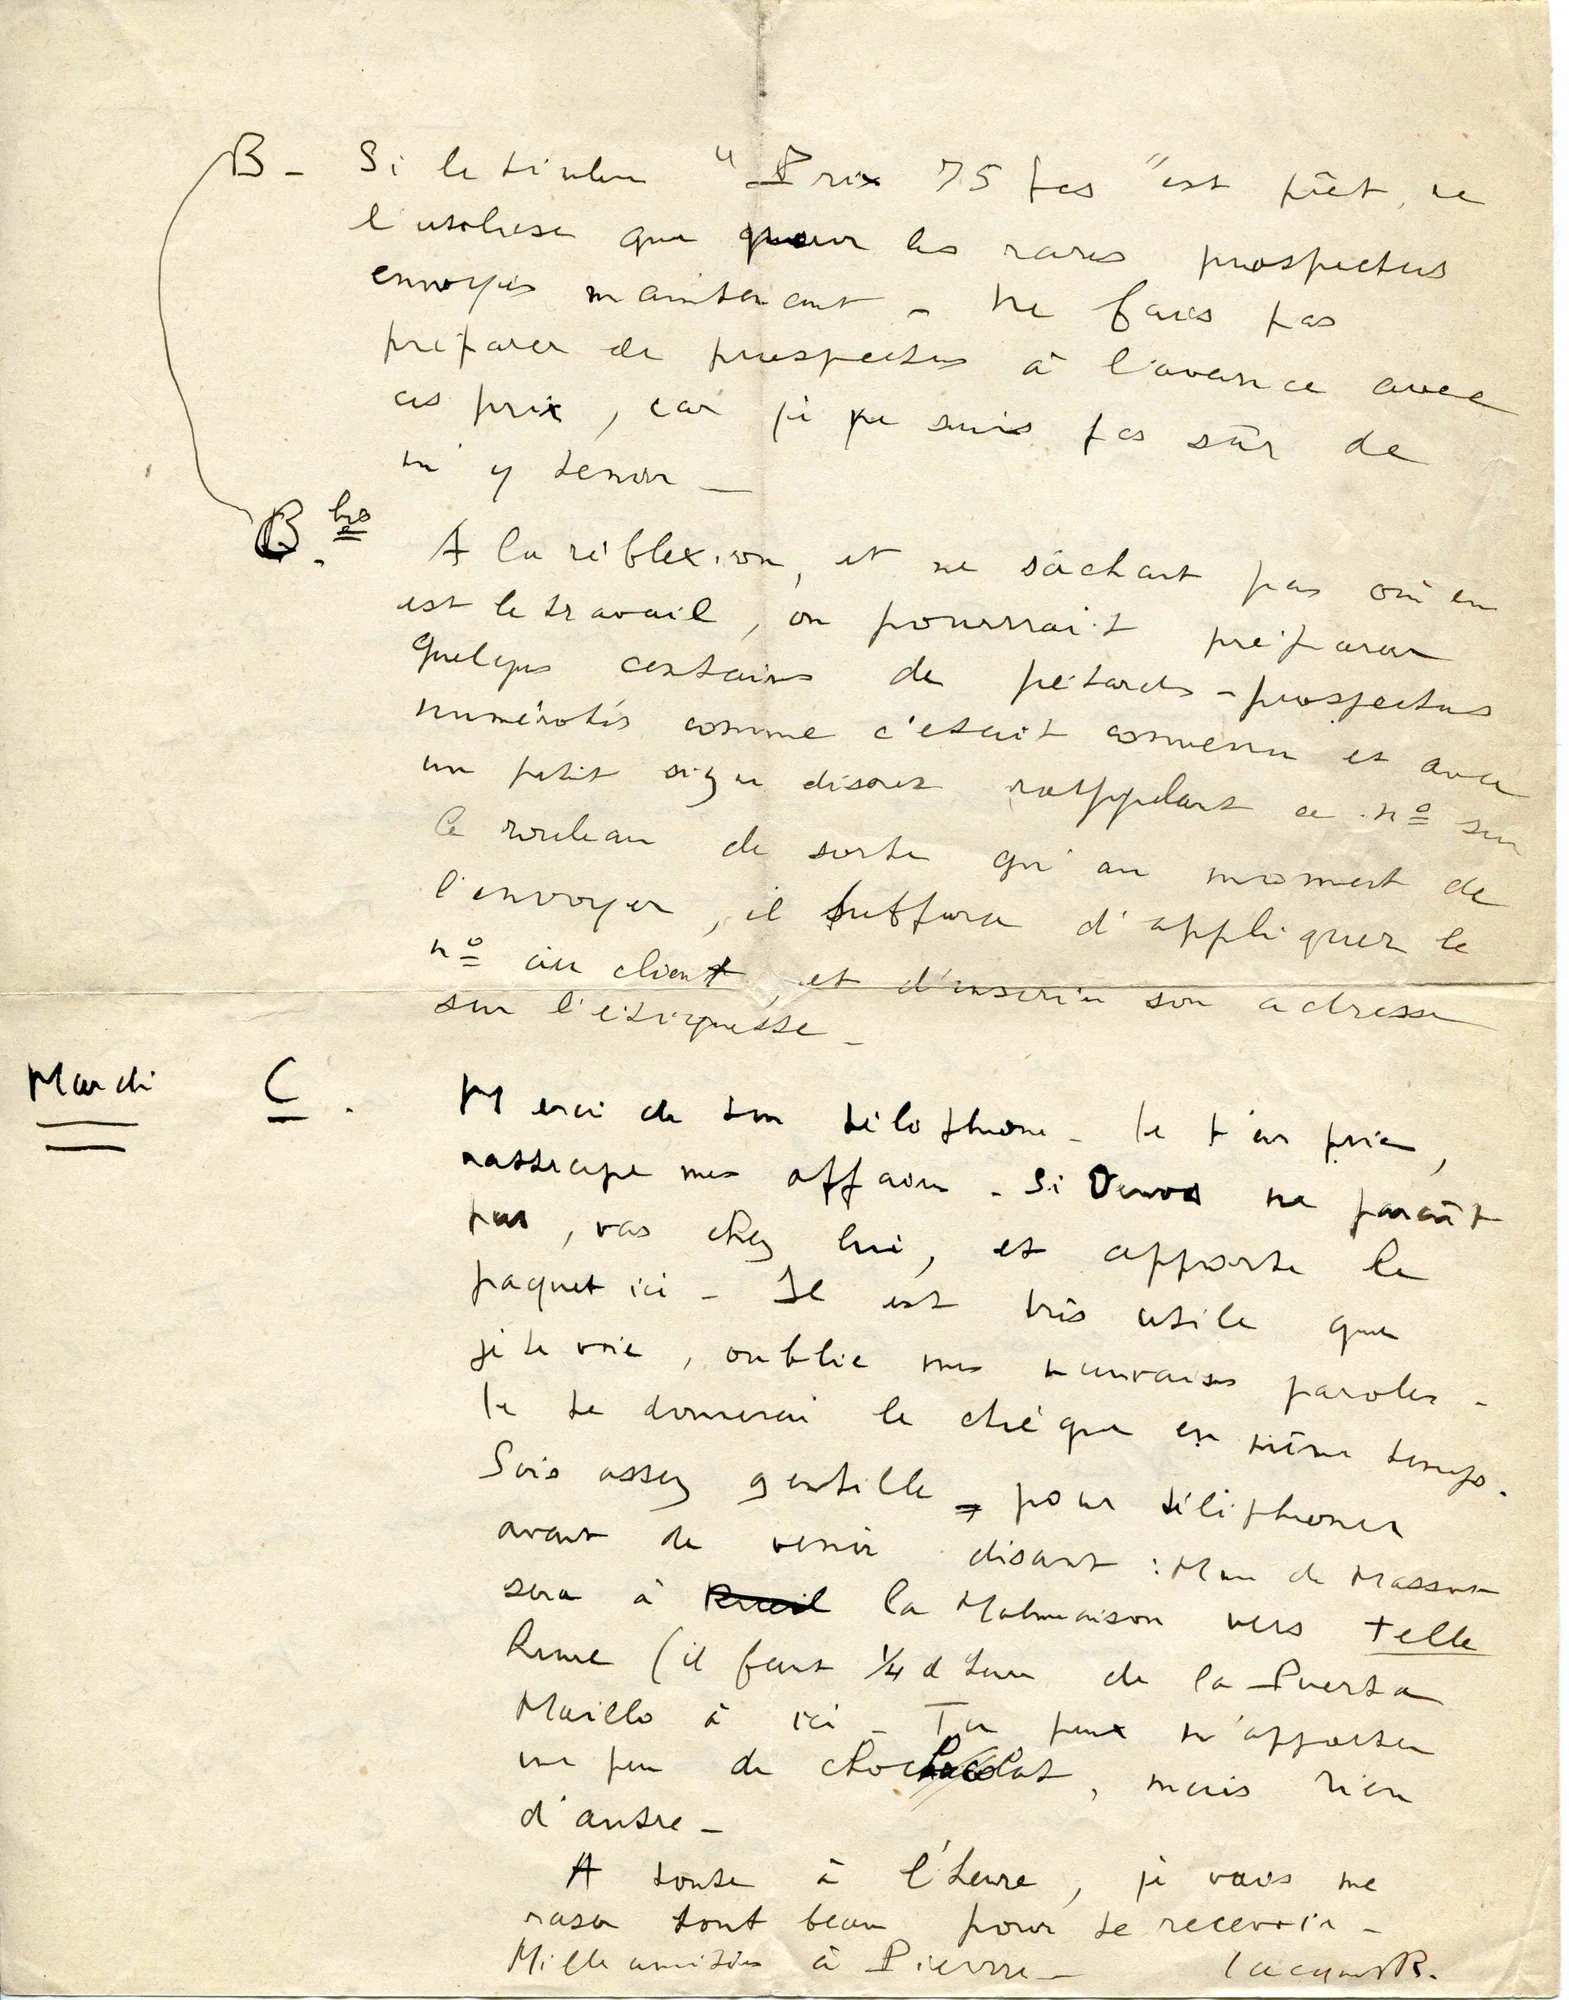 B - Si le timbre " Prix 75 fcs " est prêt, ne
l'utilise que pour les rares prospectus
envoyés maintenant - Ne fais pas
préparer de prospectus à l'avance avec
ces prix, car je ne suis pas sûr de
m'y tenir -
B bis. A la réflexion, et ne sachant pas où en
est le travail, on pourrait préparer
quelques centaines de pétards - prospectus
numérotés comme c'était convenu et avec
un petit signe discret rappelant ce nº sur
le rouleau de sorte qu'au moment de
l'envoyer, il suffira d'appliquer le
nº au client, et d'inscrire son adresse
sur l'étiquette -
Mardi C. Merci de ton téléphone - Je t'en prie,
rattrape mes affaires - Si ne paraît
pas, vas chez lui, et apporte le
paquet ici - Il est très utile que
je te voie, oublie mes mauvaises paroles -
Je te donnerai le chèque en même temps.
Sois assez gentille - pour téléphoner
avant de venir disant : Mme de Massot
sera à Rueil la Malmaison vers telle
heure (il faut 1/4 d'heure de la Puerta
Maillo à ici - Tu peux m'apporter
un peu de chocolat, mais rien
d'autre -
A toute à l'heure, je vais me
raser tout beau pour te recevoir -
Mille amitiés à Pierre - Jacques R.